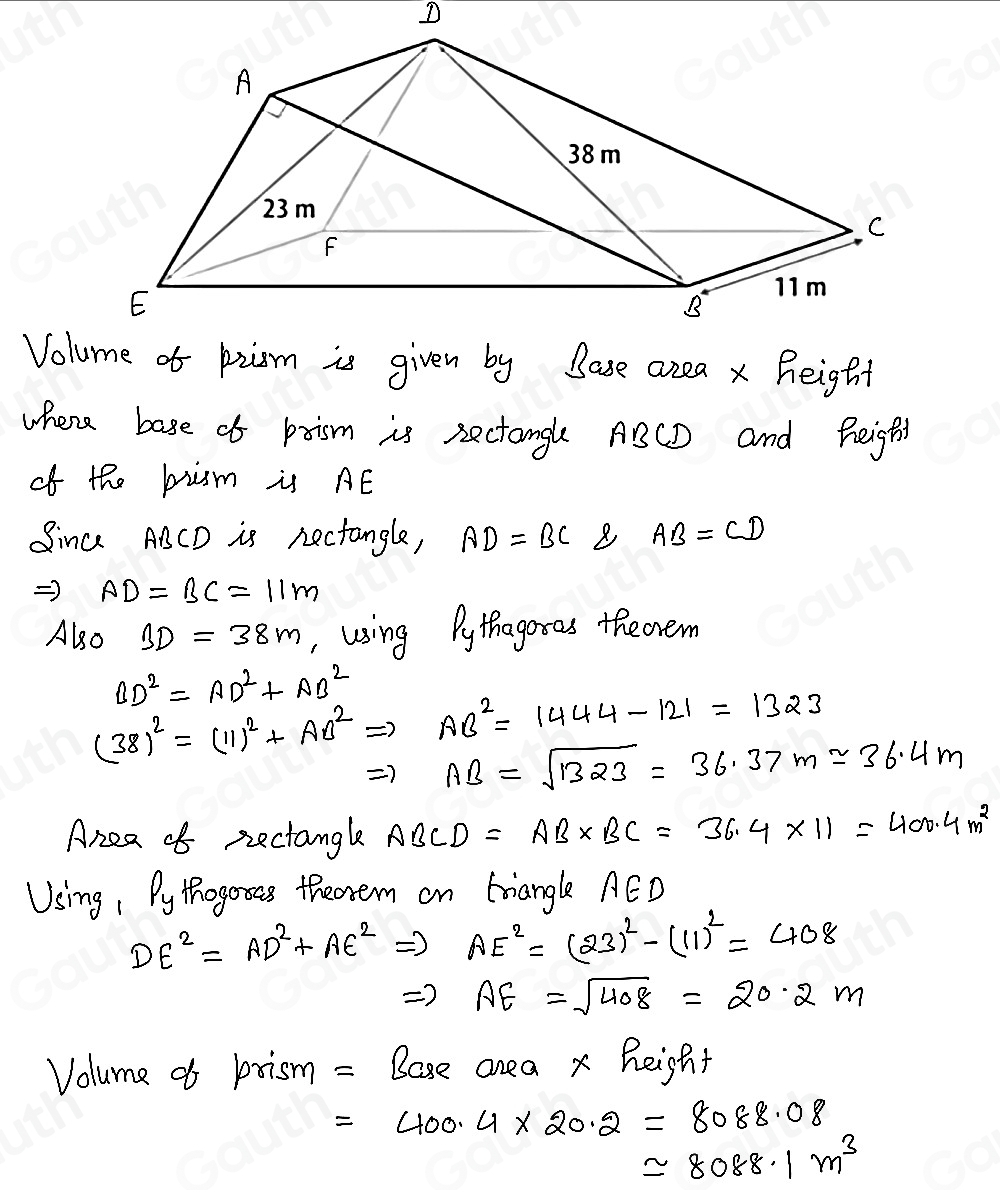 D
A
38 m
23 m
F
C
E
B
11 m
Volume of prism is given by Base area × height
where base of prism is rectangle ABCD and height
of the prism is AE
Since ABCD is rectangle, AD = BC & AB = CD
⇒ AD = BC = 11m
Also BD = 38m, using Pythagoras theorem
BD² = AD² + AB²
(38)² = (11)² + AB² ⇒ AB² = 1444 - 121 = 1323
⇒ AB = √1323 = 36.37 m ≃ 36.4 m
Area of rectangle ABCD = AB × BC = 36.4 × 11 = 400.4 m²
Using, Pythogoras theorem on triangle AED
DE² = AD² + AE² ⇒ AE² = (23)² - (11)² = 408
⇒ AE = √408 = 20.2 m
Volume of prism = Base area × height
= 400.4 × 20.2 = 8088.08
≃ 8088.1 m³